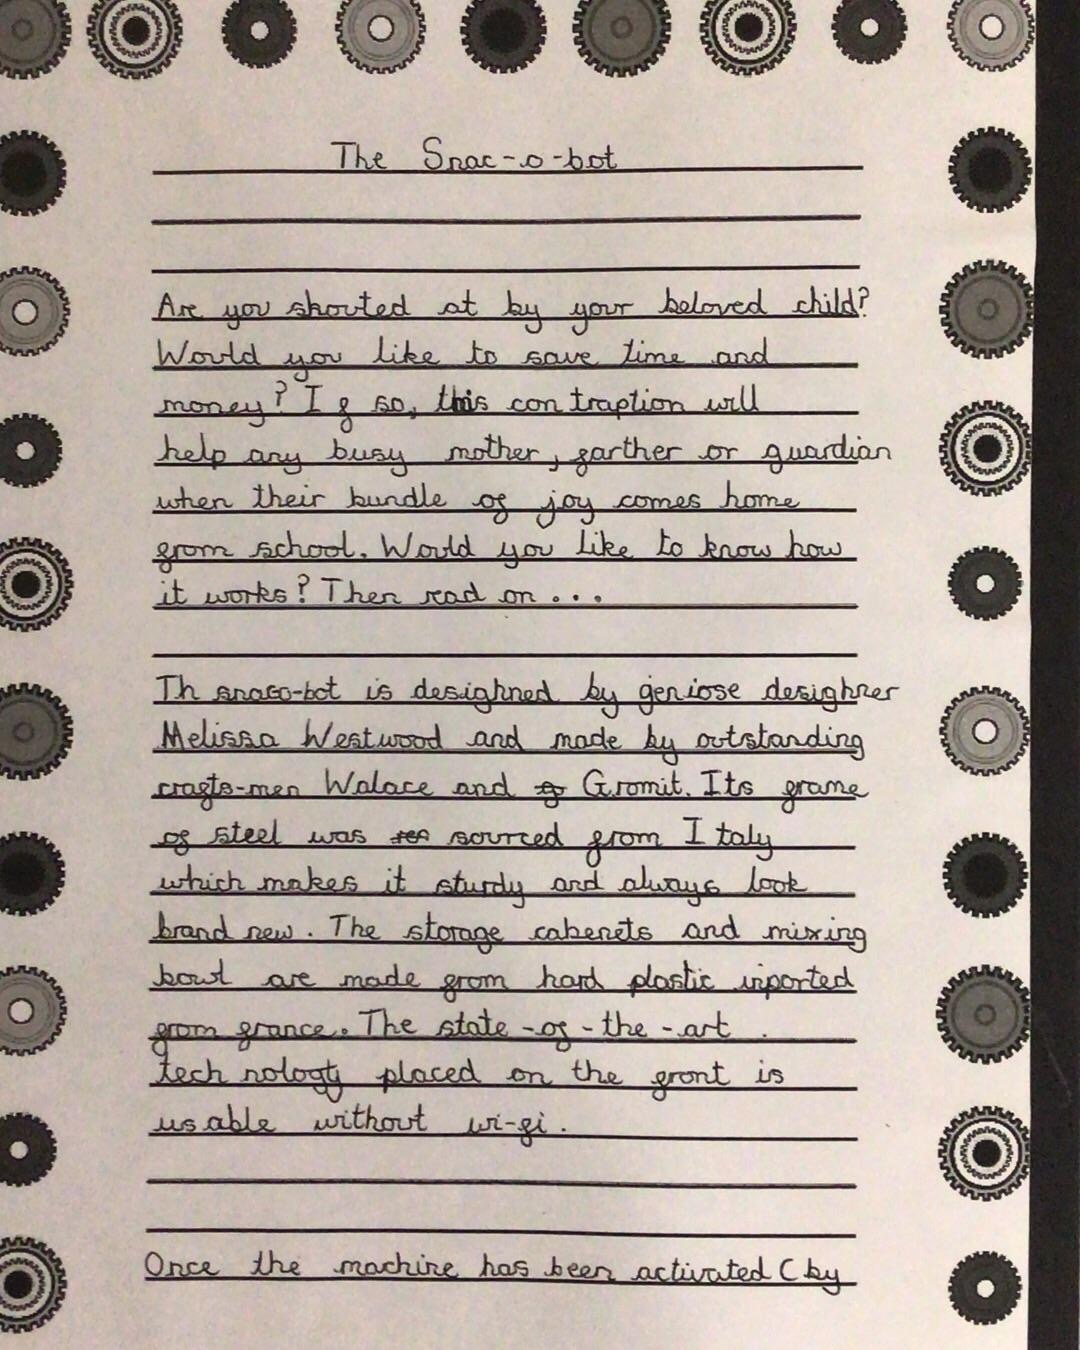 The Snac-o-bot
Are you shouted at by your beloved child?
Would you like to save time and
money? If so, this contraption will
help any busy mother, farther or guardian
when their bundle of joy comes home
from school. Would you like to know how
it works? Then read on...
Th snaco-bot is desighned by geniose desighner
Melissa Westwood and made by outstanding
crafts-men Walace and Gromit. Its frame
of steel was sourced from Italy
which makes it sturdy and always look
brand new. The storage cabenets and mixing
bowl are made from hard plastic inported
from france. The state-of-the-art
technology placed on the front is
usable without wi-fi.
Once the machine has been activated (by